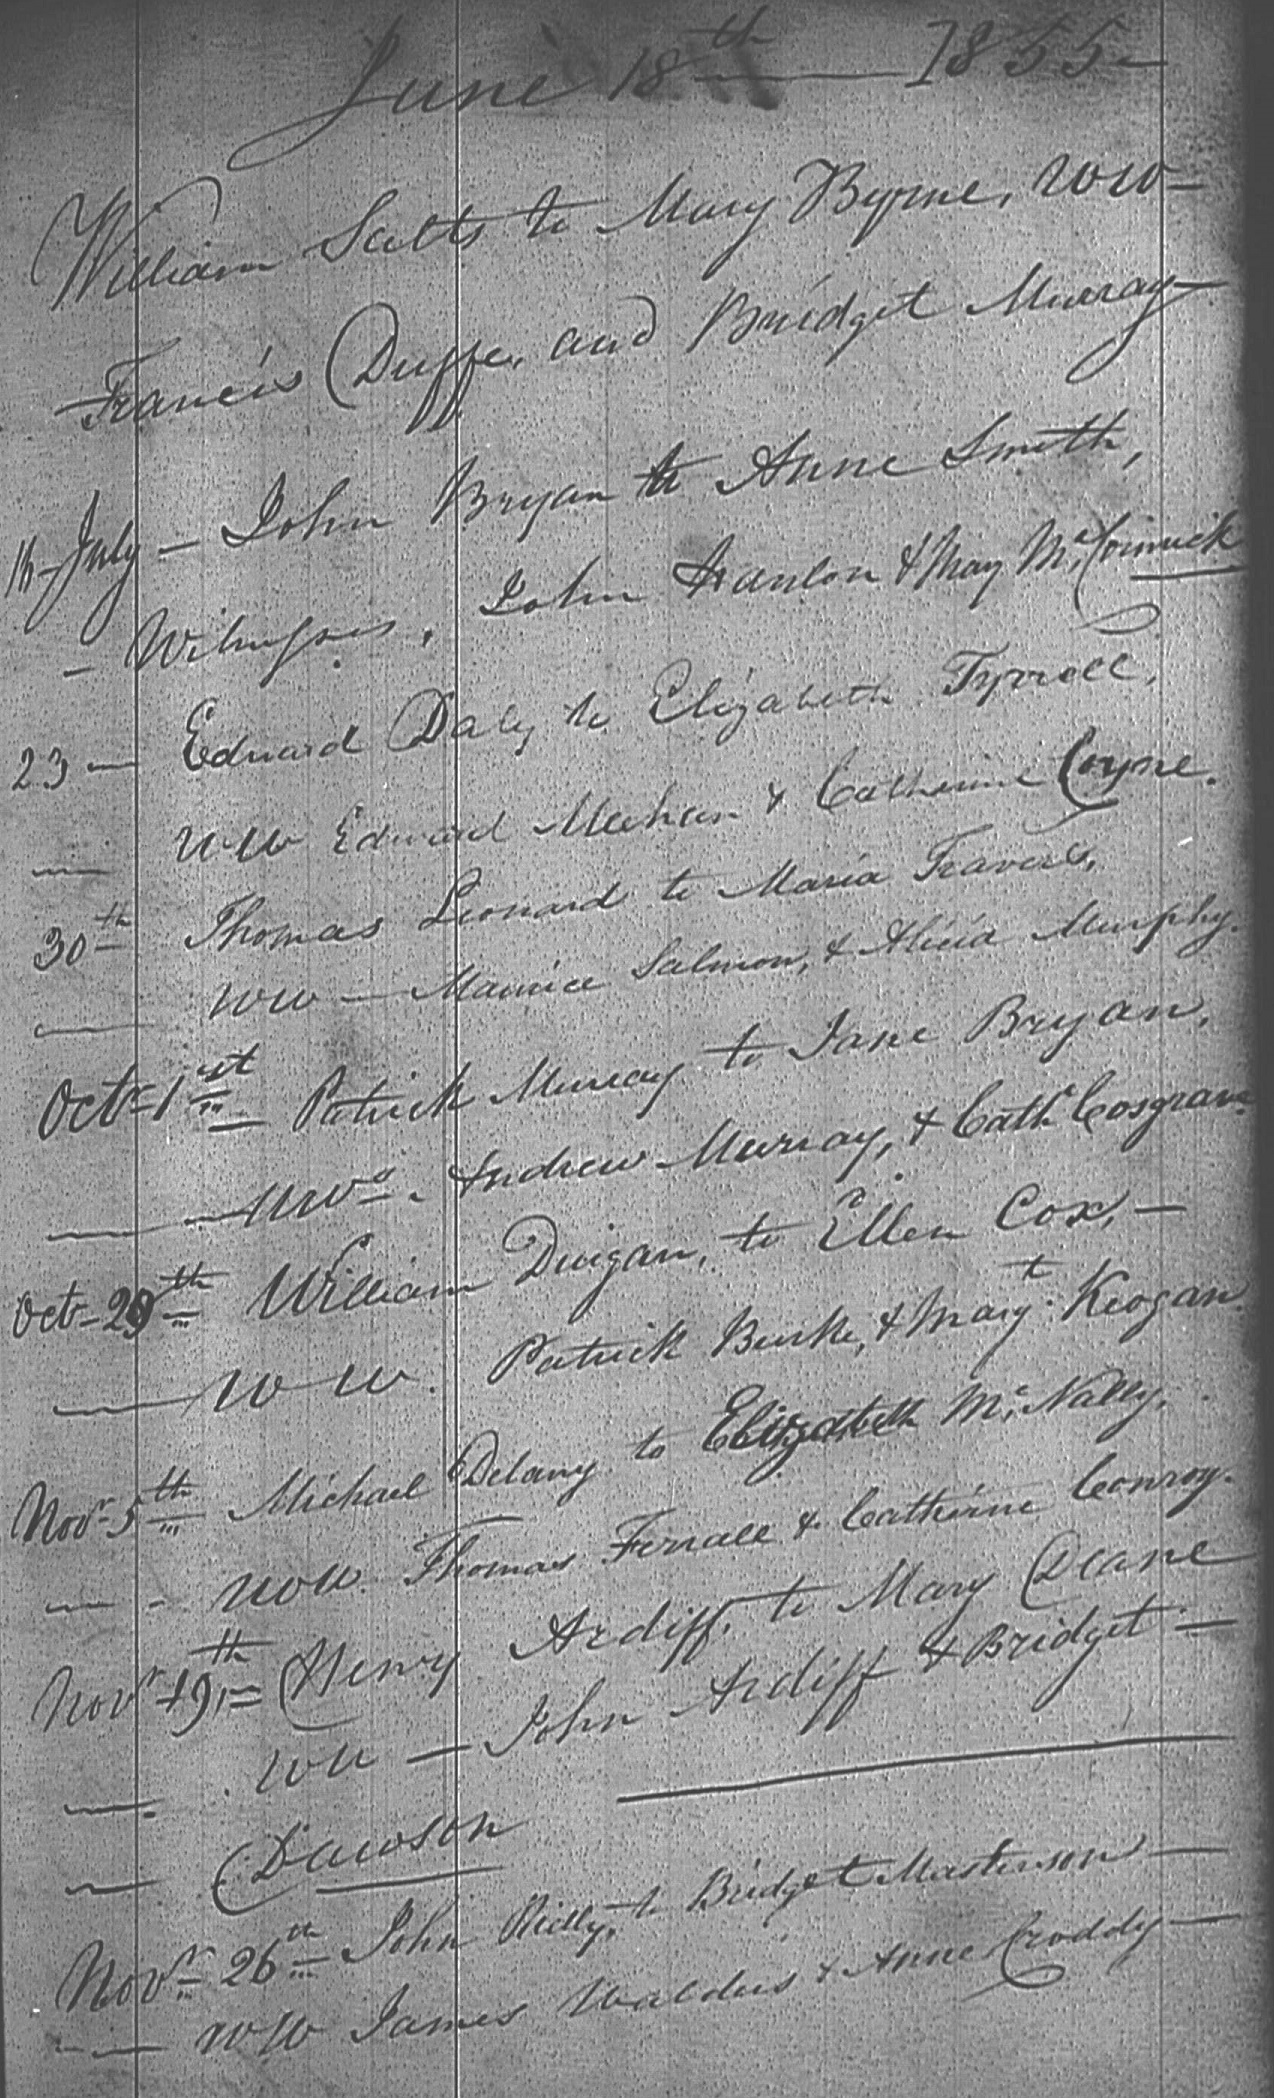 June 18th — 1855 —
William Scotts to Mary Byrne, WW —
Francis Duffe, and Bridget Murray —
July — John Bryan to Anne Smith,
— Witnesses, John Hanlon & Mary McCormick
23 — Edward Daly to Elizabeth Tyrrell,
— WW Edward Meehan & Catherine Coyne.
30th Thomas Leonard to Maria Travers,
— WW — Maurice Salmon, & Alicia Murphy.
Octr 1st — Patrick Murray to Jane Bryan,
— Andrew Murray, & Cath. Cosgrave
Octr 29th William Duigan, to Ellen Cox, —
— W W. Patrick Burke, & Margt. Keogan.
Novr 5th Michael Delany to Elizabeth McNally.
— - WW. Thomas Ferrall & Catherine Conroy.
Novr 19th Henry Ardiff, to Mary Deane
— WW — John Ardiff & Bridget —
— Dawson
Novr 26th John Reilly, to Bridget Masterson —
— WW James Walders & Anne Croddy —